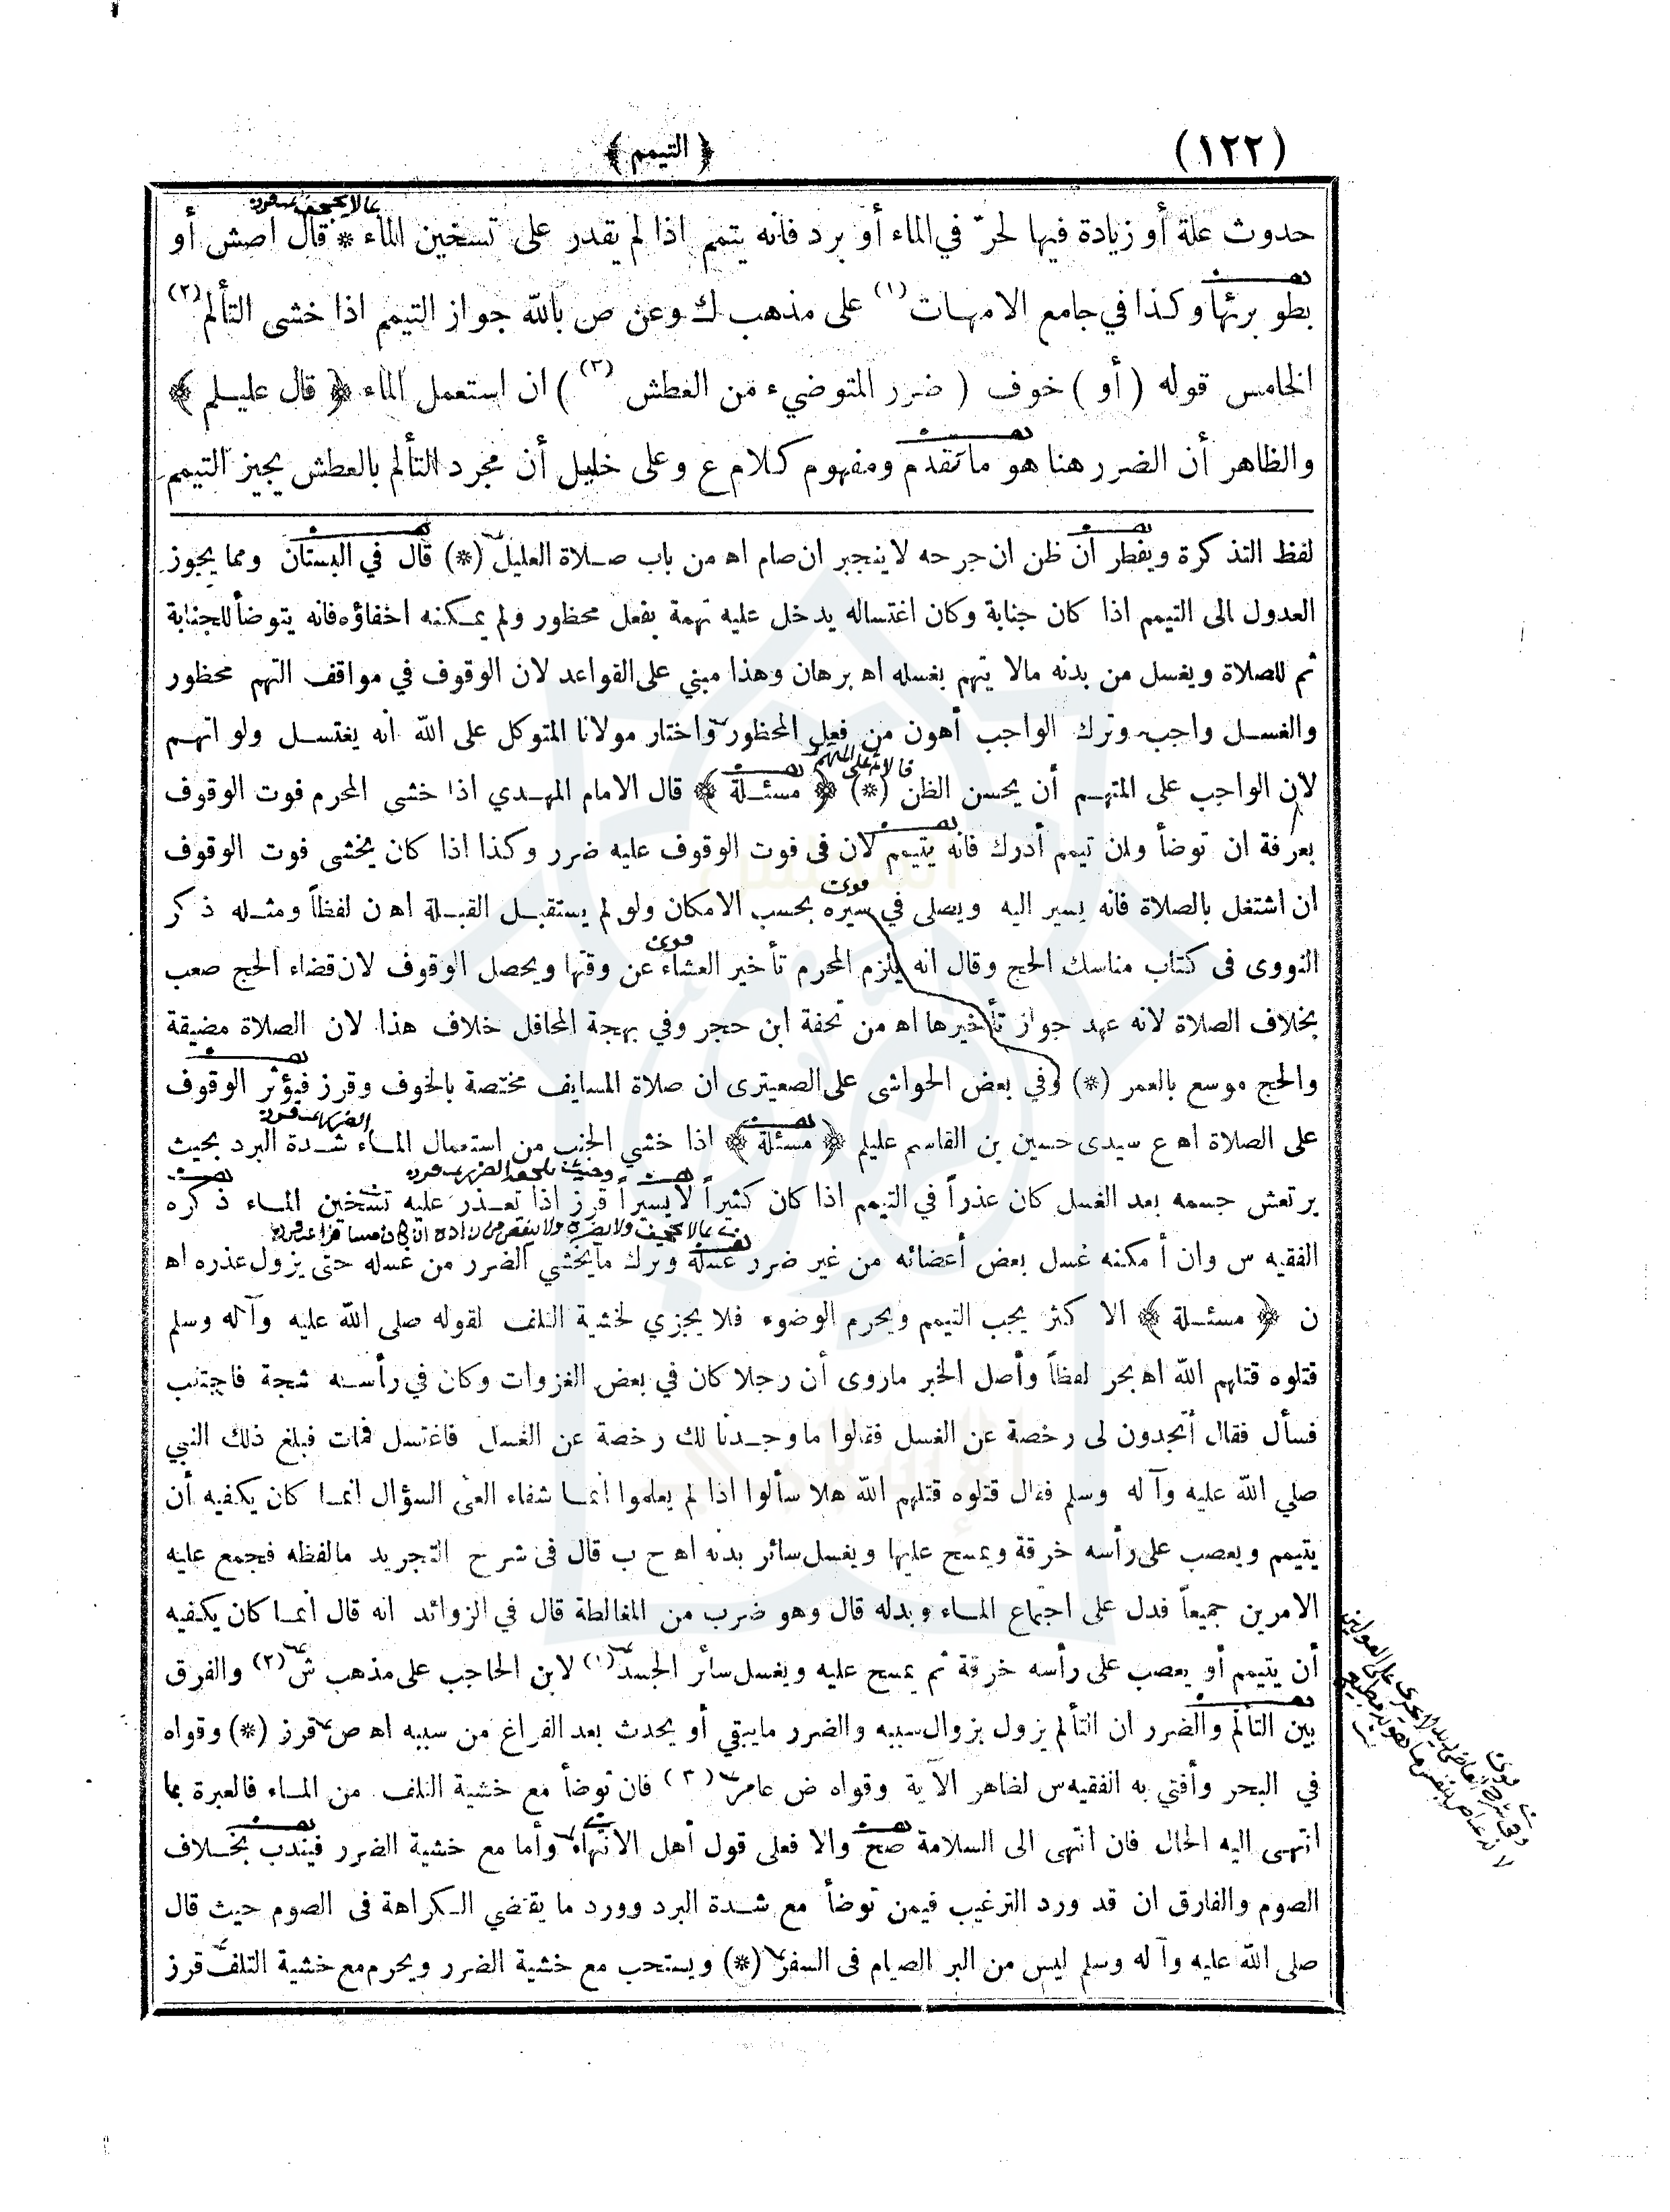 (١٢٢)
﴿ التيمم ﴾
بما لا يجحف قرز
حدوث علة أو زيادة فيها لحرّ في الماء أو برد فانه يتمم اذا لم يقدر على تسخين الماء * قال اصش أو
بطو برئها وكذا في جامع الامهات (١) على مذهب ك وعن ص بالله جواز التيمم اذا خشى التألم (٢)
الخامس قوله ( أو ) خوف ( ضرر المتوضيء من العطش (٣) ) ان استعمل الماء ﴿ قال عليلم ﴾
والظاهر أن الضرر هنا هو ما تقدم ومفهوم كلام ع وعلى خليل أن مجرد التألم بالعطش يجيز التيمم
لفظ التذكرة ويفطر ان ظن ان جرحه لا ينجبر ان صام اه من باب صلاة العليل (*) قال في البستان ومما يجوز
العدول الى التيمم اذا كان جنابة وكان اغتساله يدخل عليه تهمة بفعل محظور ولم يمكنه اخفاؤه فانه يتوضأ للجنابة
ثم للصلاة ويغسل من بدنه مالا يتهم بغسله اه برهان وهذا مبني على القواعد لان الوقوف في مواقف التهم محظور
والغسل واجب وترك الواجب أهون من فعل المحظور واختار مولانا المتوكل على الله انه يغتسل ولو اتهم
لان الواجب على المتهم أن يحسن الظن (*) ﴿ مسئلة ﴾ قال الامام المهدي اذا خشى المحرم فوت الوقوف
بعرفة ان توضأ وان تيمم أدرك فانه يتيمم لان فى فوت الوقوف عليه ضرر وكذا اذا كان يخشى فوت الوقوف
قوي
ان اشتغل بالصلاة فانه يسير اليه ويصلى في سيره بحسب الامكان ولو لم يستقبل القبلة اه ن لفظاً ومثله ذكر
قوي
النووى فى كتاب مناسك الحج وقال انه يلزم المحرم تأخير العشاء عن وقتها ويحصل الوقوف لان قضاء الحج صعب
بخلاف الصلاة لانه عهد جواز تأخيرها اه من تحفة ابن حجر وفي بهجة المحافل خلاف هذا لان الصلاة مضيقة
والحج موسع بالعمر (*) وفي بعض الحواشى على الصعيترى ان صلاة المسايف مختصة بالخوف وقرز فيؤثر الوقوف
على الصلاة اه ع سيدى حسين بن القاسم عليلم ﴿ مسئلة ﴾ اذا خشي الجنب من استعمال الماء شدة البرد بحيث
يرتعش جسمه بعد الغسل كان عذراً في التيمم اذا كان كثيراً لا يسيراً قرز اذا تعذر عليه تسخين الماء ذكره
الفقيه س وان أمكنه غسل بعض أعضائه من غير ضرر غسله وترك ما يخشي الضرر من غسله حتى يزول عذره اه
ن ﴿ مسئلة ﴾ الاكثر يجب التيمم ويحرم الوضوء فلا يجزي لخشية التلف لقوله صلى الله عليه وآله وسلم
قتلوه قتلهم الله اه بحر لفظاً وأصل الخبر ماروى أن رجلا كان في بعض الغزوات وكان في رأسه شجة فاجتنب
فسأل فقال أتجدون لى رخصة عن الغسل فقالوا ما وجدنا لك رخصة عن الغسل فاغتسل فمات فبلغ ذلك النبي
صلي الله عليه وآله وسلم فقال قتلوه قتلهم الله هلا سألوا اذا لم يعلموا انما شفاء العى السؤال انما كان يكفيه أن
يتيمم ويعصب على رأسه خرقة ويمسح عليها ويغسل سائر بدنه اه ح ب قال فى شرح التجريد مالفظه فجمع عليه
الامرين جميعاً فدل على اجتماع الماء وبدله قال وهو ضرب من المغالطة قال في الزوائد انه قال انما كان يكفيه
أن يتيمم أو يعصب على رأسه خرقة ثم يمسح عليه ويغسل سائر الجسد (١) لابن الحاجب على مذهب ش (٢) والفرق
بين التألم والضرر ان التألم يزول بزوال سببه والضرر مايبقي أو يحدث بعد الفراغ من سببه اه ص قرز (*) وقواه
في البحر وأفتي به الفقيه س لظاهر الآية وقواه ض عامر (٣) فان توضأ مع خشية التلف من الماء فالعبرة بما
انتهى اليه الحال فان انتهى الى السلامة صح والا فعلى قول أهل الانتهاء وأما مع خشية الضرر فيندب بخلاف
الصوم والفارق ان قد ورد الترغيب فيمن توضأ مع شدة البرد وورد ما يقتضي الكراهة فى الصوم حيث قال
صلى الله عليه وآله وسلم ليس من البر الصيام فى السفر (*) ويستحب مع خشية الضرر ويحرم مع خشية التلف قرز